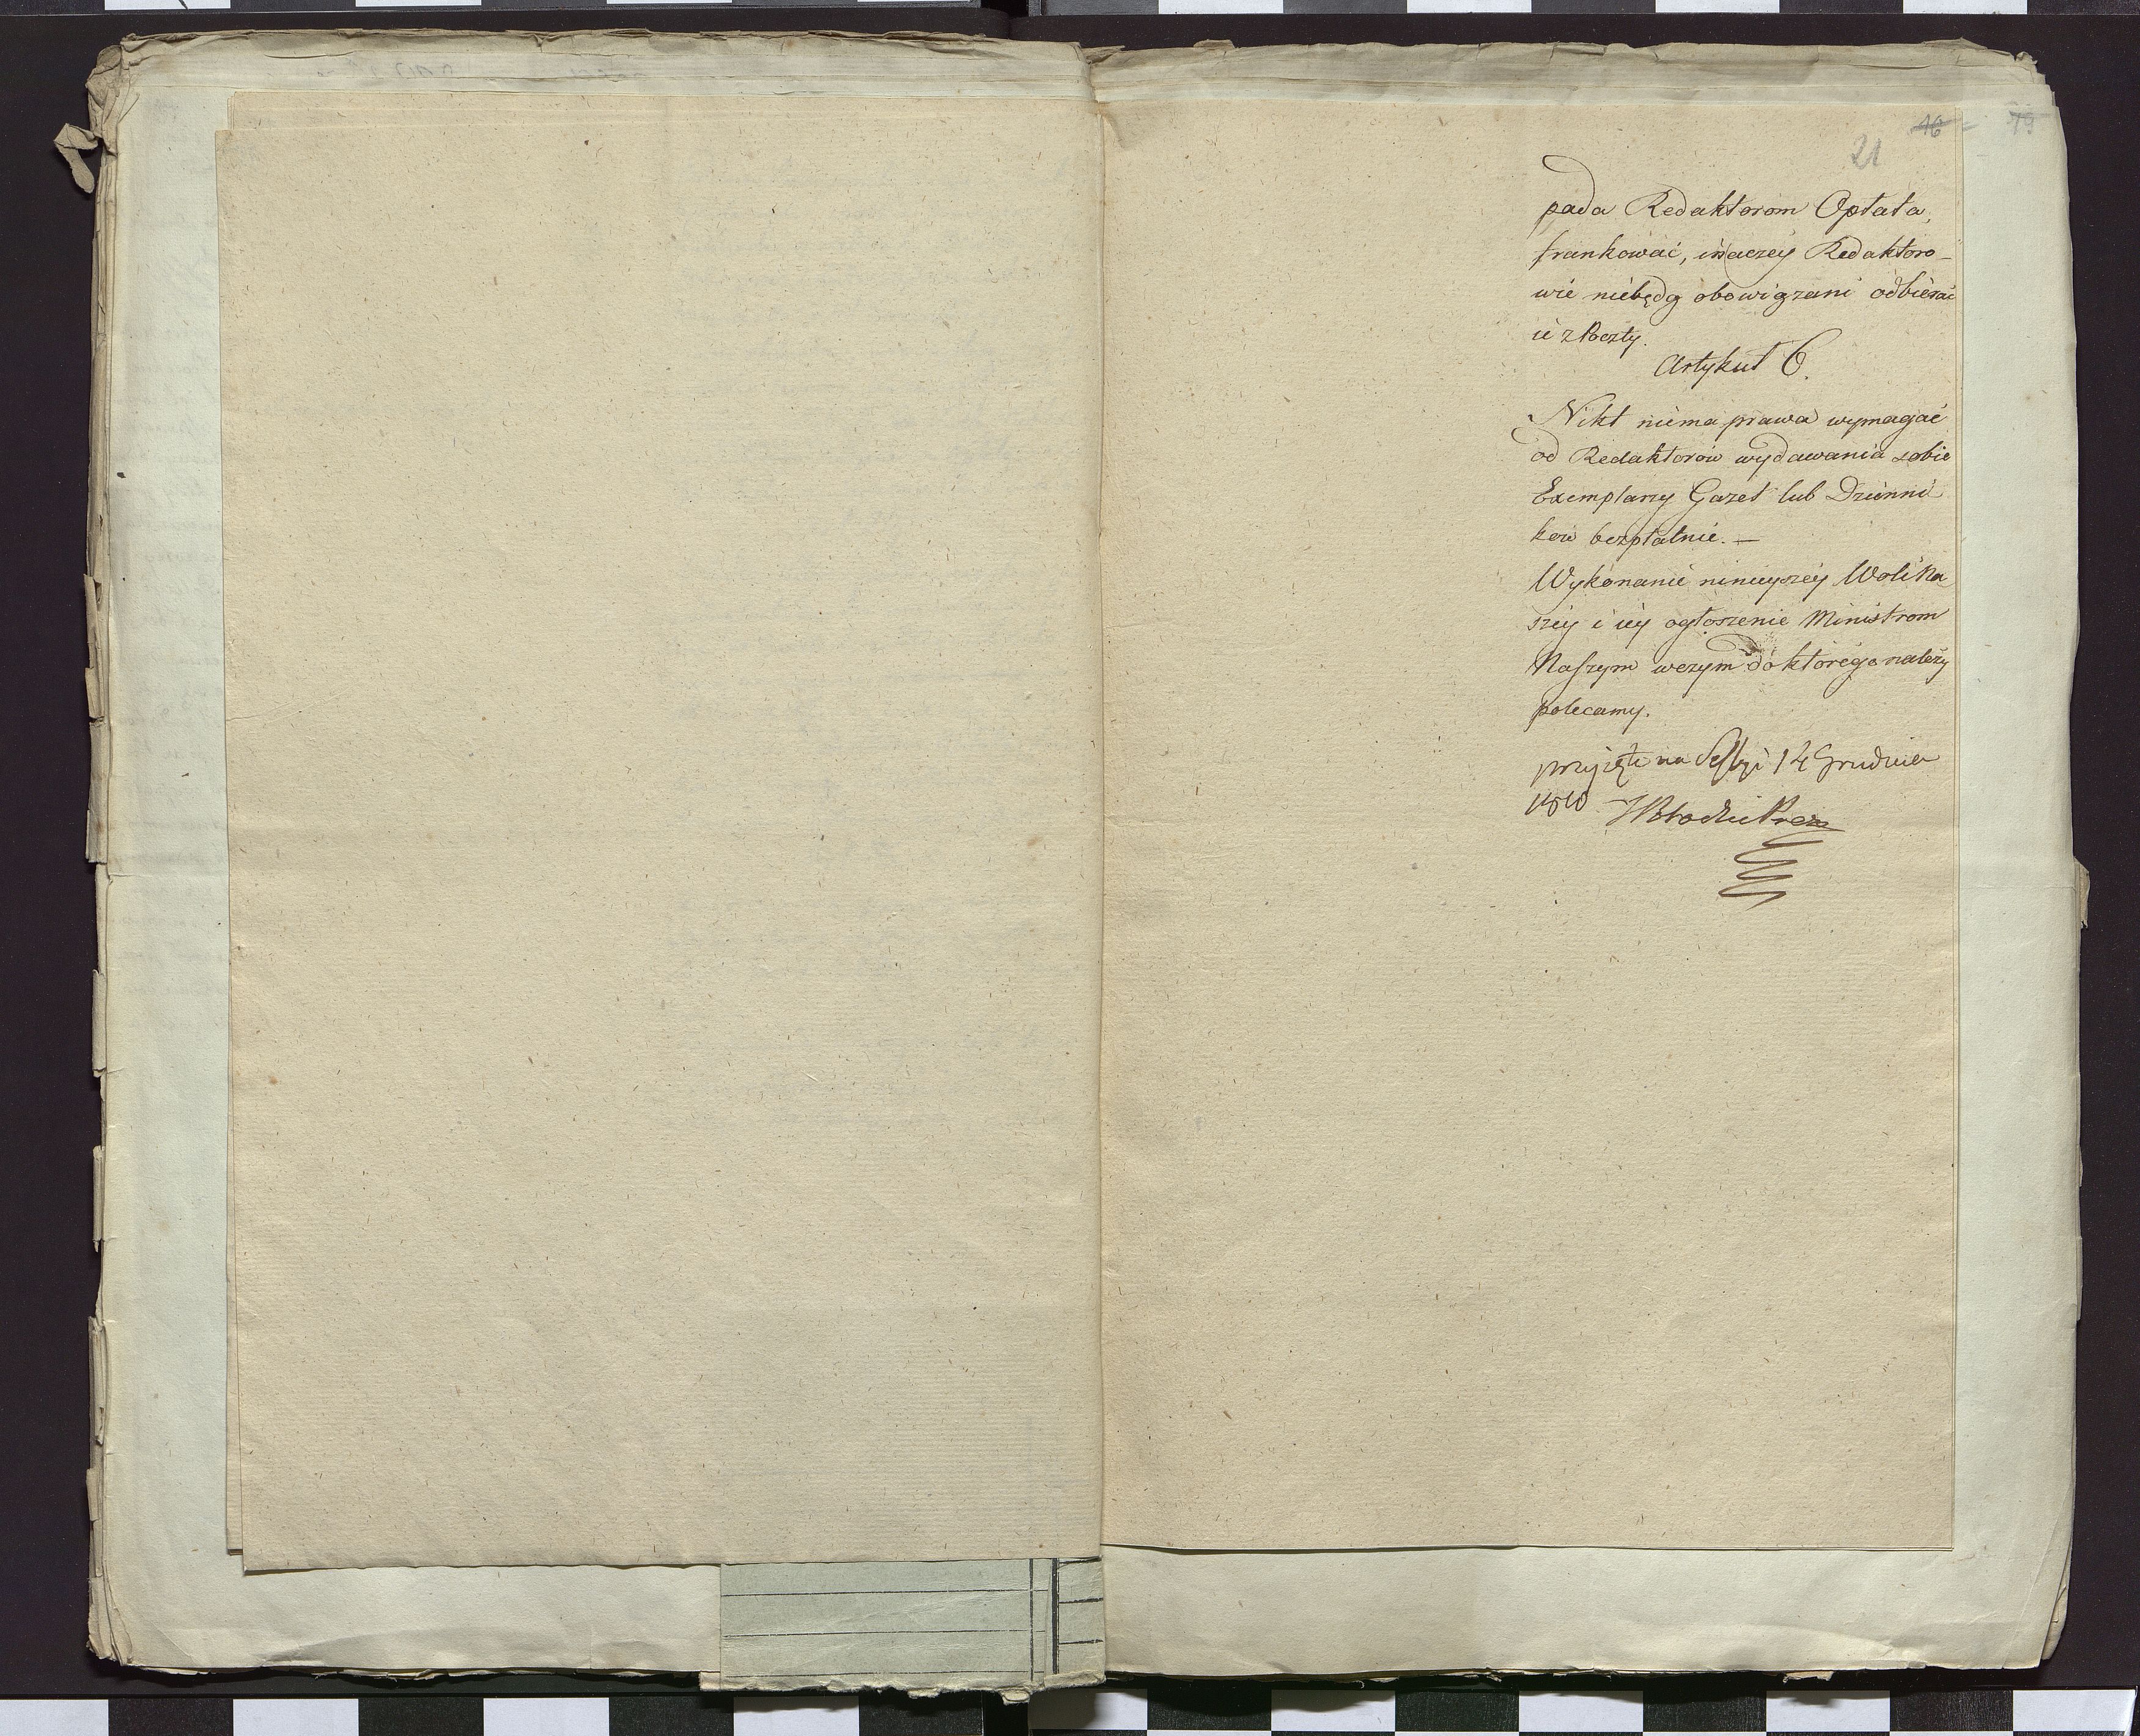 16 = 79
21
pada Redaktorom Opłata,
frankować, inaczey Redaktoro-
wie niebędą obowiązani odbierać
ie z Poczty.
Artykuł 6.
Nikt niema prawa wymagać
od Redaktorow wydawania sobie
Exemplarzy Gazet lub Dzienni
kow bezpłatnie. —
Wykonanie ninieyszey Woli Na
szey i iey ogłoszenie Ministrom
Naszym wczym do ktorego należy
polecamy.
przyięte na Sessyi 14 Grudnia
1810